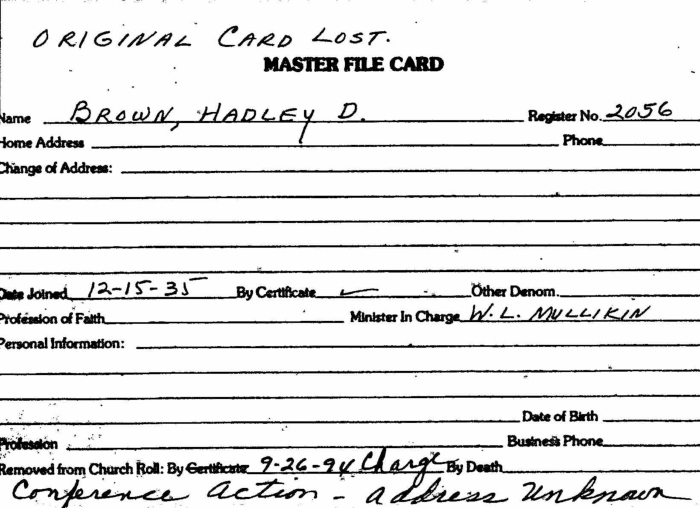 ORIGINAL CARD LOST.
MASTER FILE CARD
Name BROWN, HADLEY D. Register No. 2056
Home Address Phone
Change of Address:
Date Joined 12-15-35 By Certificate ✓ Other Denom.
Profession of Faith Minister In Charge W. L. MULLIKIN
Personal Information:
Date of Birth
Profession Business Phone
Removed from Church Roll: By Certificate 9-26-94 Charge By Death
Conference action - address unknown